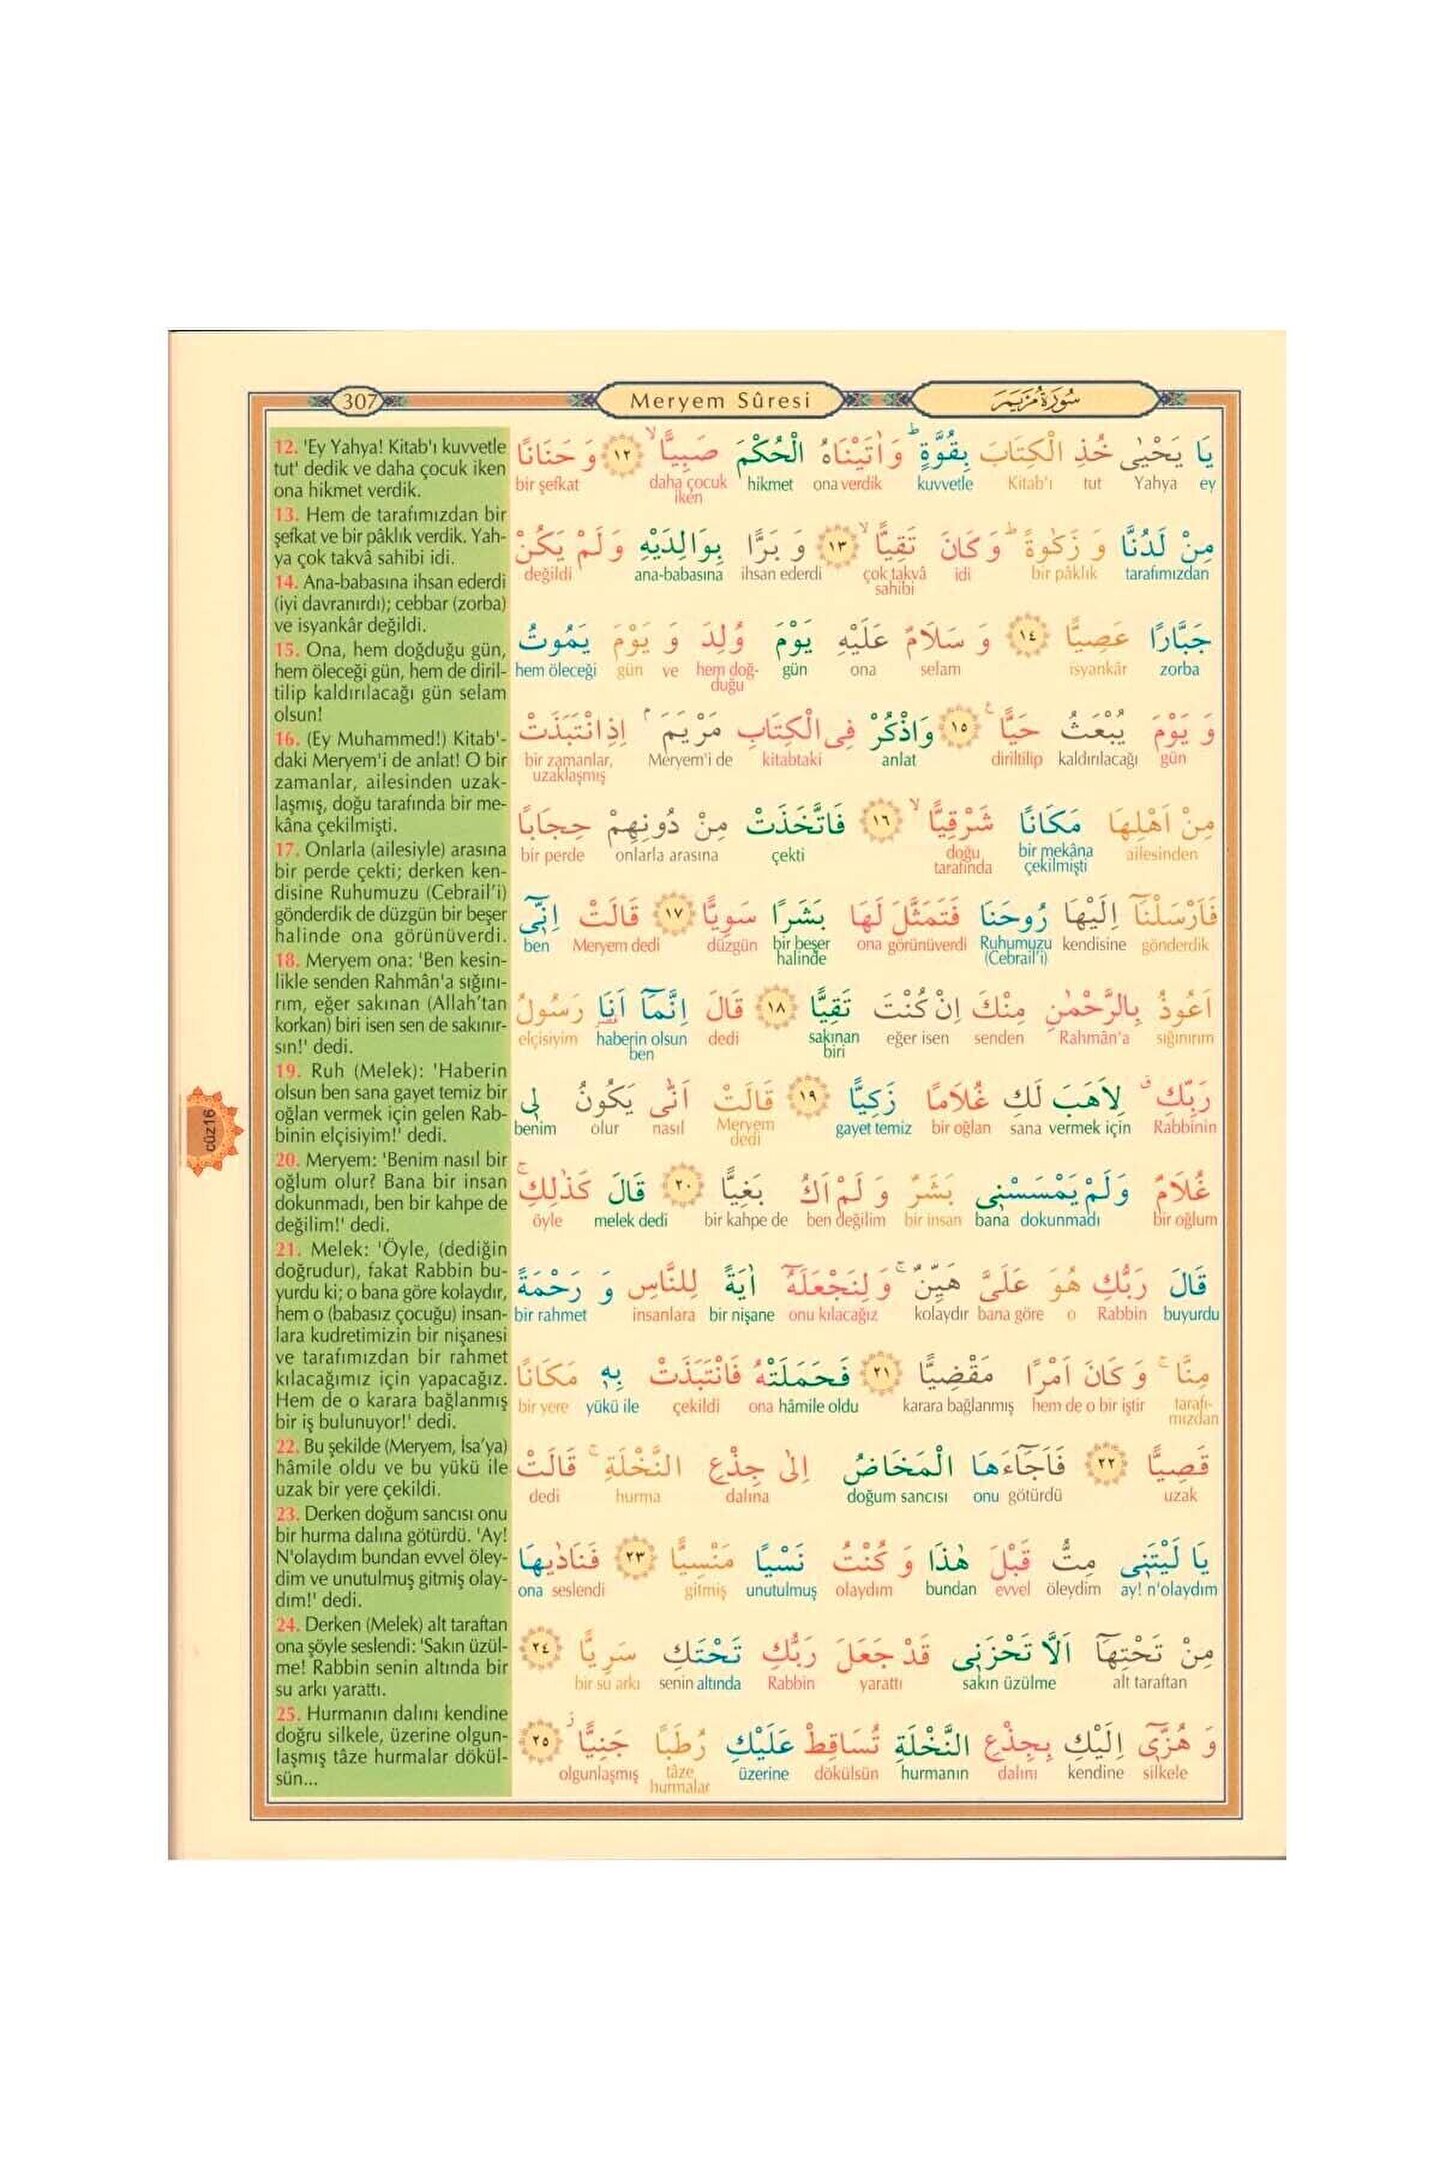 307
Meryem Sûresi
سُورَةُ مَرْيَمَ
12. 'Ey Yahya! Kitab'ı kuvvetle
tut' dedik ve daha çocuk iken
ona hikmet verdik.
13. Hem de tarafımızdan bir
şefkat ve bir pâklık verdik. Yah-
ya çok takvâ sahibi idi.
14. Ana-babasına ihsan ederdi
(iyi davranırdı); cebbar (zorba)
ve isyankâr değildi.
15. Ona, hem doğduğu gün,
hem öleceği gün, hem de diril-
tilip kaldırılacağı gün selam
olsun!
16. (Ey Muhammed!) Kitab'-
daki Meryem'i de anlat! O bir
zamanlar, ailesinden uzak-
laşmış, doğu tarafında bir me-
kâna çekilmişti.
17. Onlarla (ailesiyle) arasına
bir perde çekti; derken ken-
disine Ruhumuzu (Cebrail'i)
gönderdik de düzgün bir beşer
halinde ona görünüverdi.
18. Meryem ona: 'Ben kesin-
likle senden Rahmân'a sığını-
rım, eğer sakınan (Allah'tan
korkan) biri isen sen de sakınır-
sın!' dedi.
19. Ruh (Melek): 'Haberin
olsun ben sana gayet temiz bir
oğlan vermek için gelen Rab-
binin elçisiyim!' dedi.
20. Meryem: 'Benim nasıl bir
oğlum olur? Bana bir insan
dokunmadı, ben bir kahpe de
değilim!' dedi.
21. Melek: 'Öyle, (dediğin
doğrudur), fakat Rabbin bu-
yurdu ki; o bana göre kolaydır,
hem o (babasız çocuğu) insan-
lara kudretimizin bir nişanesi
ve tarafımızdan bir rahmet
kılacağımız için yapacağız.
Hem de o karara bağlanmış
bir iş bulunuyor!' dedi.
22. Bu şekilde (Meryem, İsa'ya)
hâmile oldu ve bu yükü ile
uzak bir yere çekildi.
23. Derken doğum sancısı onu
bir hurma dalına götürdü. 'Ay!
N'olaydım bundan evvel öley-
dim ve unutulmuş gitmiş olay-
dım!' dedi.
24. Derken (Melek) alt taraftan
ona şöyle seslendi: 'Sakın üzül-
me! Rabbin senin altında bir
su arkı yarattı.
25. Hurmanın dalını kendine
doğru silkele, üzerine olgun-
laşmış tâze hurmalar dökül-
sün...
cüz16
يَا يَحْيٰى خُذِ الْكِتَابَ بِقُوَّةٍ ط وَاٰتَيْنَاهُ الْحُكْمَ صَبِيًّا لا ١٢ وَ حَنَانًا
bir şefkat daha çocuk iken hikmet ona verdik kuvvetle Kitab'ı tut Yahya ey
مِنْ لَدُنَّا وَ زَكٰوةً ط وَ كَانَ تَقِيًّا لا ١٣ وَ بَرًّا بِوَالِدَيْهِ وَ لَمْ يَكُنْ
değildi ana-babasına ihsan ederdi çok takvâ sahibi idi bir pâklık tarafımızdan
جَبَّارًا عَصِيًّا ١٤ وَ سَلَامٌ عَلَيْهِ يَوْمَ وُلِدَ وَ يَوْمَ يَمُوتُ
hem öleceği gün ve hem doğ-duğu gün ona selam isyankâr zorba
وَ يَوْمَ يُبْعَثُ حَيًّا ع ١٥ وَاذْكُرْ فِى الْكِتَابِ مَرْيَمَ م اِذِ انْتَبَذَتْ
bir zamanlar, uzaklaşmış Meryem'i de kitabtaki anlat diriltilip kaldırılacağı gün
مِنْ اَهْلِهَا مَكَانًا شَرْقِيًّا لا ١٦ فَاتَّخَذَتْ مِنْ دُونِهِمْ حِجَابًا
bir perde onlarla arasına çekti doğu tarafında bir mekâna çekilmişti ailesinden
فَاَرْسَلْنَٓا اِلَيْهَا رُوحَنَا فَتَمَثَّلَ لَهَا بَشَرًا سَوِيًّا ١٧ قَالَتْ اِنّ۪ٓى
ben Meryem dedi düzgün bir beşer halinde ona görünüverdi Ruhumuzu (Cebrail'i) kendisine gönderdik
اَعُوذُ بِالرَّحْمٰنِ مِنْكَ اِنْ كُنْتَ تَقِيًّا ١٨ قَالَ اِنَّمَٓا اَنَا رَسُولُ
elçisiyim haberin olsun ben dedi sakınan biri eğer isen senden Rahmân'a sığınırım
رَبِّكِ ق لِاَهَبَ لَكِ غُلَامًا زَكِيًّا ١٩ قَالَتْ اَنّٰى يَكُونُ ل۪ى
benim olur nasıl Meryem dedi gayet temiz bir oğlan sana vermek için Rabbinin
غُلَامٌ وَ لَمْ يَمْسَسْن۪ى بَشَرٌ وَ لَمْ اَكُ بَغِيًّا ٢٠ قَالَ كَذٰلِكِ ج
öyle melek dedi bir kahpe de ben değilim bir insan bana dokunmadı bir oğlum
قَالَ رَبُّكِ هُوَ عَلَىَّ هَيِّنٌ ج وَ لِنَجْعَلَهُٓ اٰيَةً لِلنَّاسِ وَ رَحْمَةً
bir rahmet insanlara bir nişane onu kılacağız kolaydır bana göre o Rabbin buyurdu
مِنَّا ج وَ كَانَ اَمْرًا مَقْضِيًّا ٢١ فَحَمَلَتْهُ فَانْتَبَذَتْ بِه۪ مَكَانًا
bir yere yükü ile çekildi ona hâmile oldu karara bağlanmış hem de o bir iştir tarafı-mızdan
قَصِيًّا ٢٢ فَاَجَٓاءَهَا الْمَخَاضُ اِلٰى جِذْعِ النَّخْلَةِ ج قَالَتْ
dedi hurma dalına doğum sancısı onu götürdü uzak
يَا لَيْتَن۪ى مِتُّ قَبْلَ هٰذَا وَ كُنْتُ نَسْيًا مَنْسِيًّا ٢٣ فَنَادٰيهَا
ona seslendi gitmiş unutulmuş olaydım bundan evvel öleydim ay! n'olaydım
مِنْ تَحْتِهَٓا اَلَّا تَحْزَن۪ى قَدْ جَعَلَ رَبُّكِ تَحْتَكِ سَرِيًّا ٢٤
bir su arkı senin altında Rabbin yarattı sakın üzülme alt taraftan
وَ هُزّ۪ٓى اِلَيْكِ بِجِذْعِ النَّخْلَةِ تُسَاقِطْ عَلَيْكِ رُطَبًا جَنِيًّا ز ٢٥
olgunlaşmış tâze hurmalar üzerine dökülsün hurmanın dalını kendine silkele